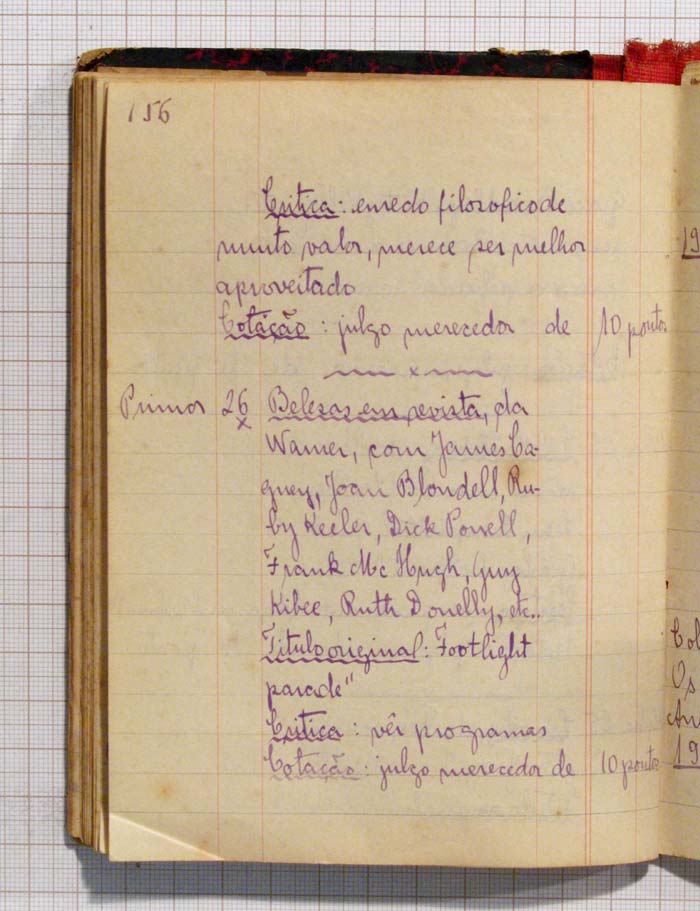 156
Critica: enredo filozofico de
muito valor, merece ser melhor
aproveitado
Cotação: julgo merecedor de 10 pontos
x
Primor 26 Belesas em revista, da
x
Warner, com James Ca-
gney, Joan Blondell, Ru-
by Keeler, Dick Powell,
Frank Mc Hugh, Guy
Kibee, Ruth Donelly, etc..
Titulo original: Footlight
parade"
Critica: vêr programas
Cotação: julgo merecedor de 10 pontos
19
Col
Os
An
19